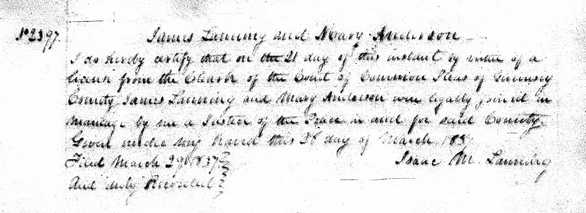 No 2397. James Lanning and Mary Anderson
I do hereby certify that on the 21 day of this instant by virtue of a
licence from the Clerk of the Court of Common Pleas of Guernsey
County James Lanning and Mary Anderson were legally joined in
marriage by me a Justice of the Peace in and for said County
Given under my hand this 26 day of March 1837
Filed March 29th 1837 Isaac M. Lanning
And duly Recorded